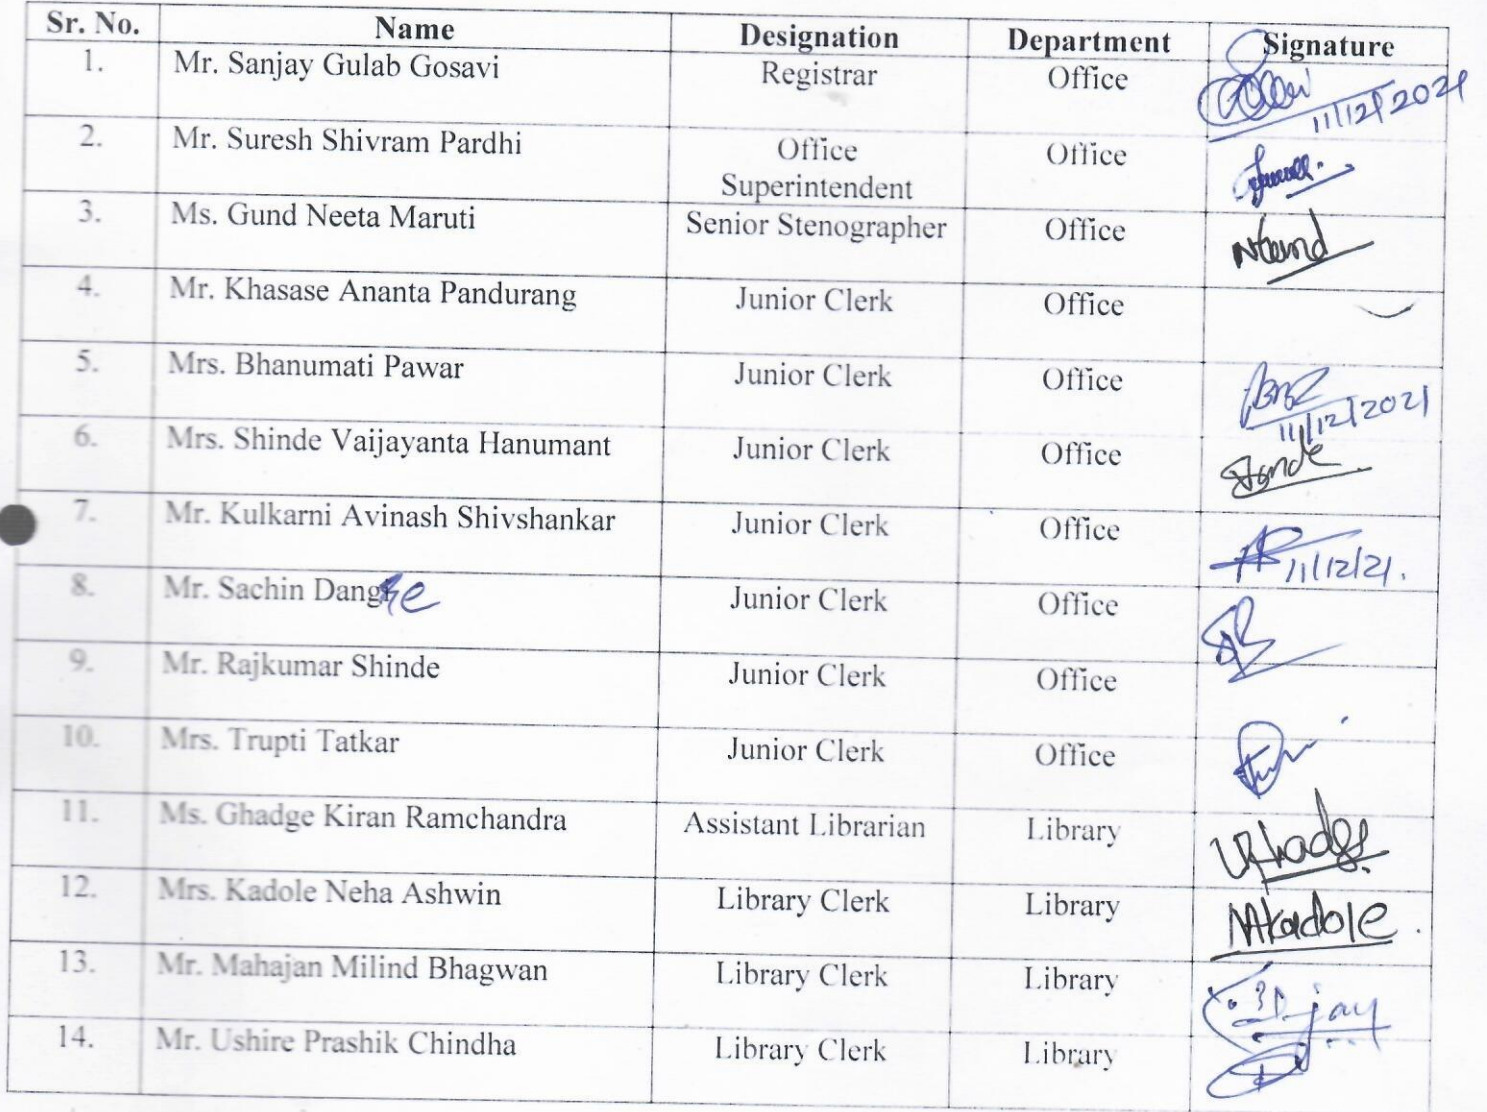 Sr. No. Name Designation Department Signature
1. Mr. Sanjay Gulab Gosavi Registrar Office
11/12/2021
2. Mr. Suresh Shivram Pardhi Office Superintendent Office
3. Ms. Gund Neeta Maruti Senior Stenographer Office
4. Mr. Khasase Ananta Pandurang Junior Clerk Office
5. Mrs. Bhanumati Pawar Junior Clerk Office
11/12/2021
6. Mrs. Shinde Vaijayanta Hanumant Junior Clerk Office
7. Mr. Kulkarni Avinash Shivshankar Junior Clerk Office
11/12/21.
8. Mr. Sachin Junior Clerk Office
9. Mr. Rajkumar Shinde Junior Clerk Office
10. Mrs. Trupti Tatkar Junior Clerk Office
11. Ms. Ghadge Kiran Ramchandra Assistant Librarian Library
12. Mrs. Kadole Neha Ashwin Library Clerk Library NAkadole.
13. Mr. Mahajan Milind Bhagwan Library Clerk Library
14. Mr. Ushire Prashik Chindha Library Clerk Library